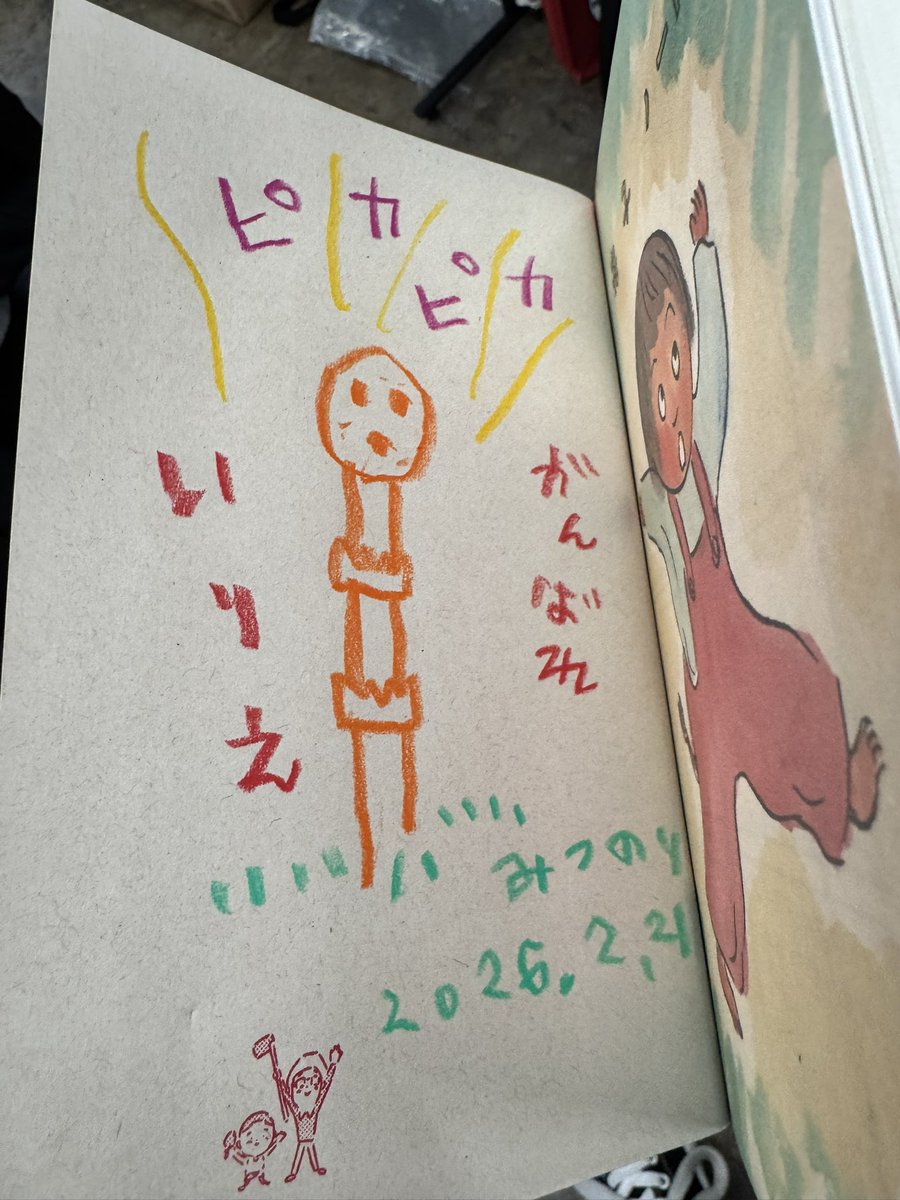 ピカピカ
がんばれ
いりえ
みつのり
2026.2.21